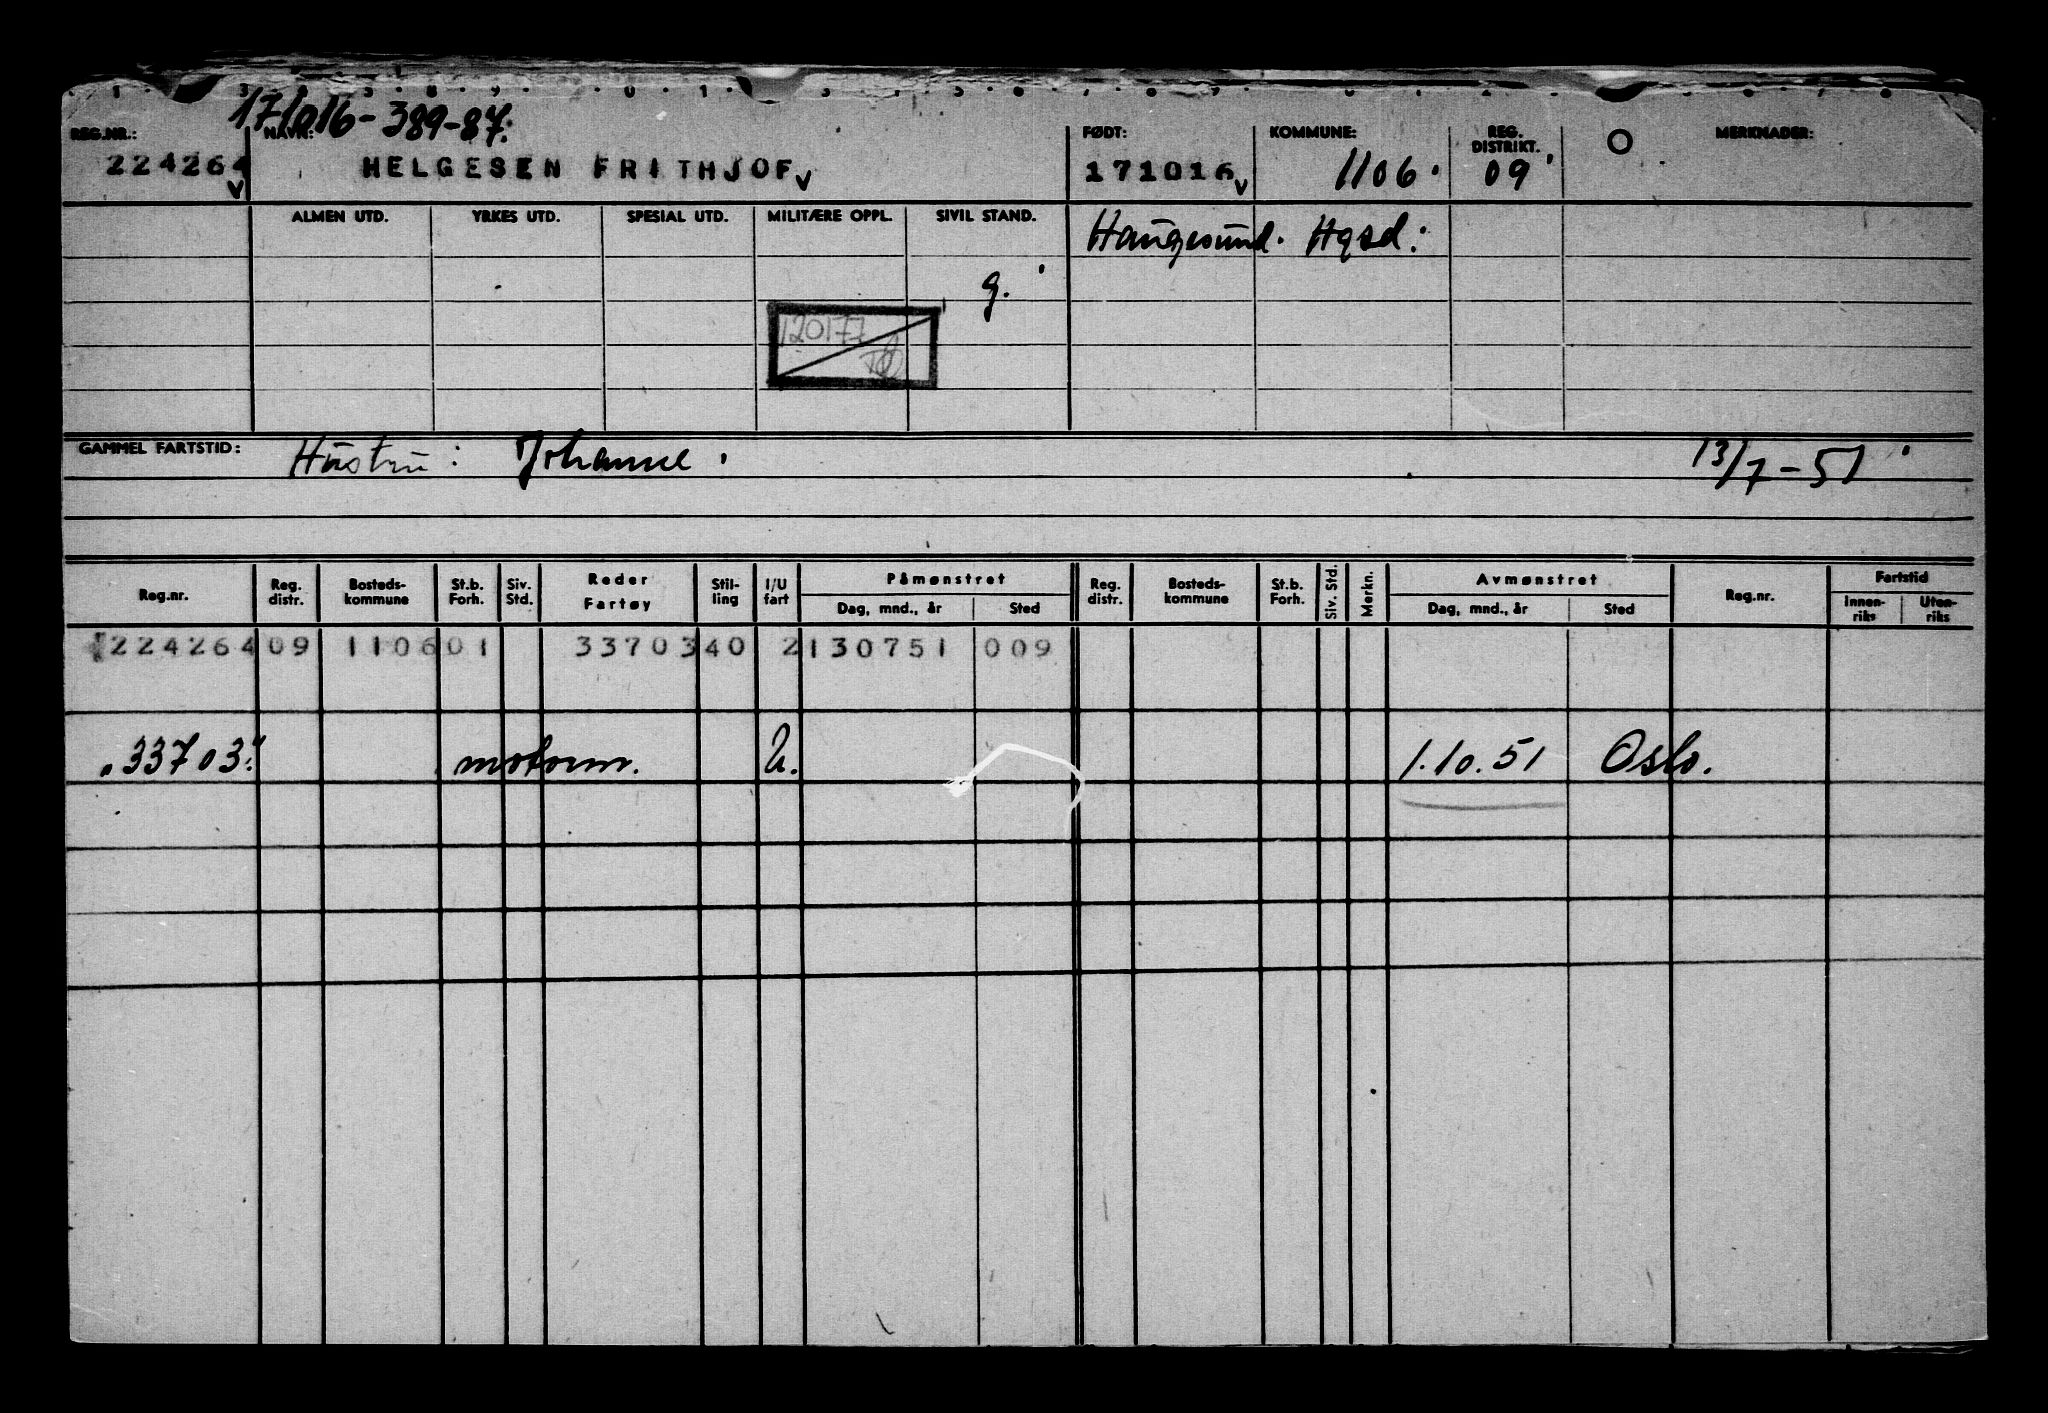 171016-389-87.
REG.NR.: NAVN: FØDT: KOMMUNE: REG. DISTRIKT. MERKNADER:
224264 HELGESEN FRITHJOF 171016 1106 09
ALMEN UTD. YRKES UTD. SPESIAL UTD. MILITÆRE OPPL. SIVIL STAND. Haugesund. Hgsd.
g.
120177
GAMMEL FARTSTID: Hustru: Johanne. 13/7-51
Reg.nr. Reg. distr. Bosteds-kommune St.b. Forh. Siv. Std. Reder Fartøy Stil-ling I/U fart Påmønstret Dag, mnd., år Sted Reg. distr. Bosteds-kommune St.b. Forh. Siv. Std. Merkn. Avmønstret Dag, mnd., år Sted Reg.nr. Fartstid Innen-riks Uten-riks
224264 09 1106 01 33703 40 2 130751 009
"33703" motorm. U. 1.10.51 Oslo.